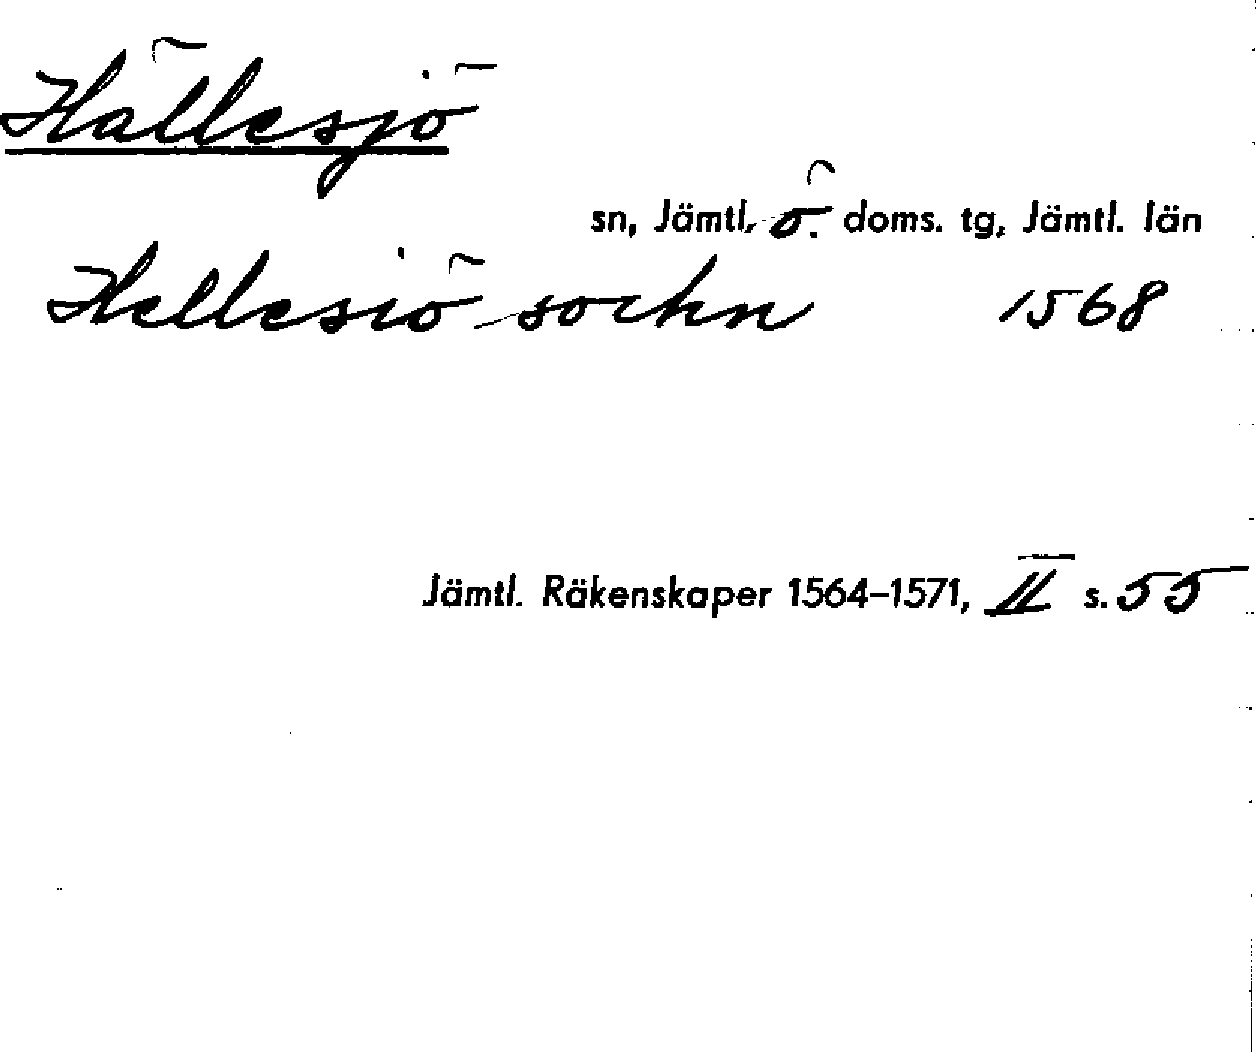 Hällesjö
sn, Jämtl. ö. doms. tg, Jämtl. län
Hellesiö sockn 1568
Jämtl. Räkenskaper 1564–1571, II s. 55